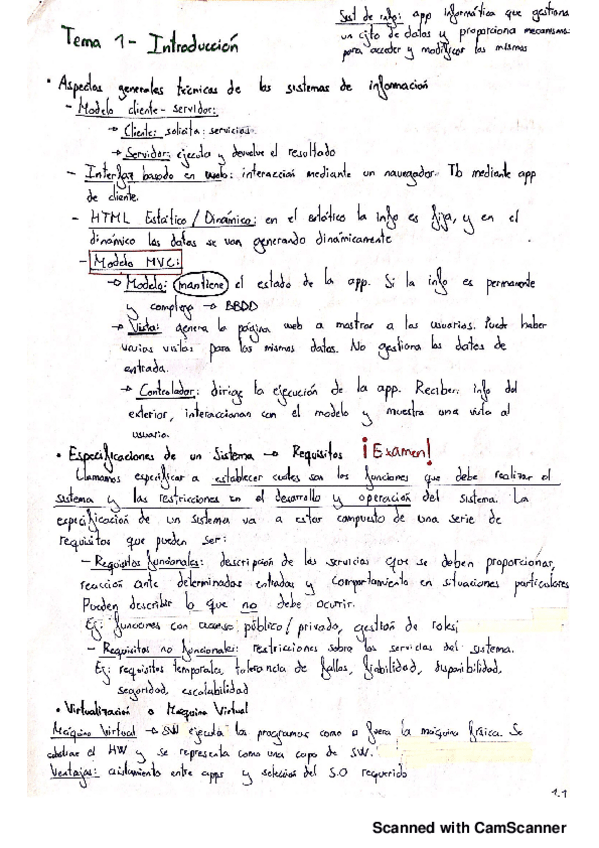 Sist de info: app informática que gestiona
un cjto de datos y proporciona mecanismos
para acceder y modificar los mismos
Tema 1- Introducción
• Aspectos generales técnicos de los sistemas de información
- Modelo cliente-servidor:
→ Cliente: solicita servicios.
→ Servidor: ejecuta y devuelve el resultado
- Interfaz basado en web: interacción mediante un navegador. Tb mediante app
de cliente.
- HTML Estático / Dinámico: en el estático la info es fija, y en el
dinámico los datos se van generando dinámicamente
- Modelo MVC:
→ Modelo: mantiene el estado de la app. Si la info es permanente
y compleja → BBDD
→ Vista: genera la página web a mostrar a los usuarios. Puede haber
varias vistas para los mismos datos. No gestiona los datos de
entrada.
→ Controlador: dirige la ejecución de la app. Reciben info del
exterior, interaccionan con el modelo y muestra una vista al
usuario.
• Especificaciones de un Sistema → Requisitos ¡Examen!
Llamamos especificar a establecer cuales son las funciones que debe realizar el
sistema y las restricciones en el desarrollo y operación del sistema. La
especificación de un sistema va a estar compuesto de una serie de
requisitos que pueden ser:
- Requisitos funcionales: descripción de los servicios que se deben proporcionar,
reacción ante determinadas entradas y comportamiento en situaciones particulares
Pueden describir lo que no debe ocurrir.
Ej: funciones con acceso público/privado, gestión de roles
- Requisitos no funcionales: restricciones sobre los servicios del sistema.
Ej: requisitos temporales, tolerancia de fallos, fiabilidad, disponibilidad,
seguridad, escalabilidad
• Virtualización o Maquina Virtual
Máquina Virtual → SW ejecuta los programas como si fuera la maquina física. Se
el HW y se representa como una capa de SW.
Ventajas: aislamiento entre apps y selección del S.O requerido
1.1
Scanned with CamScanner